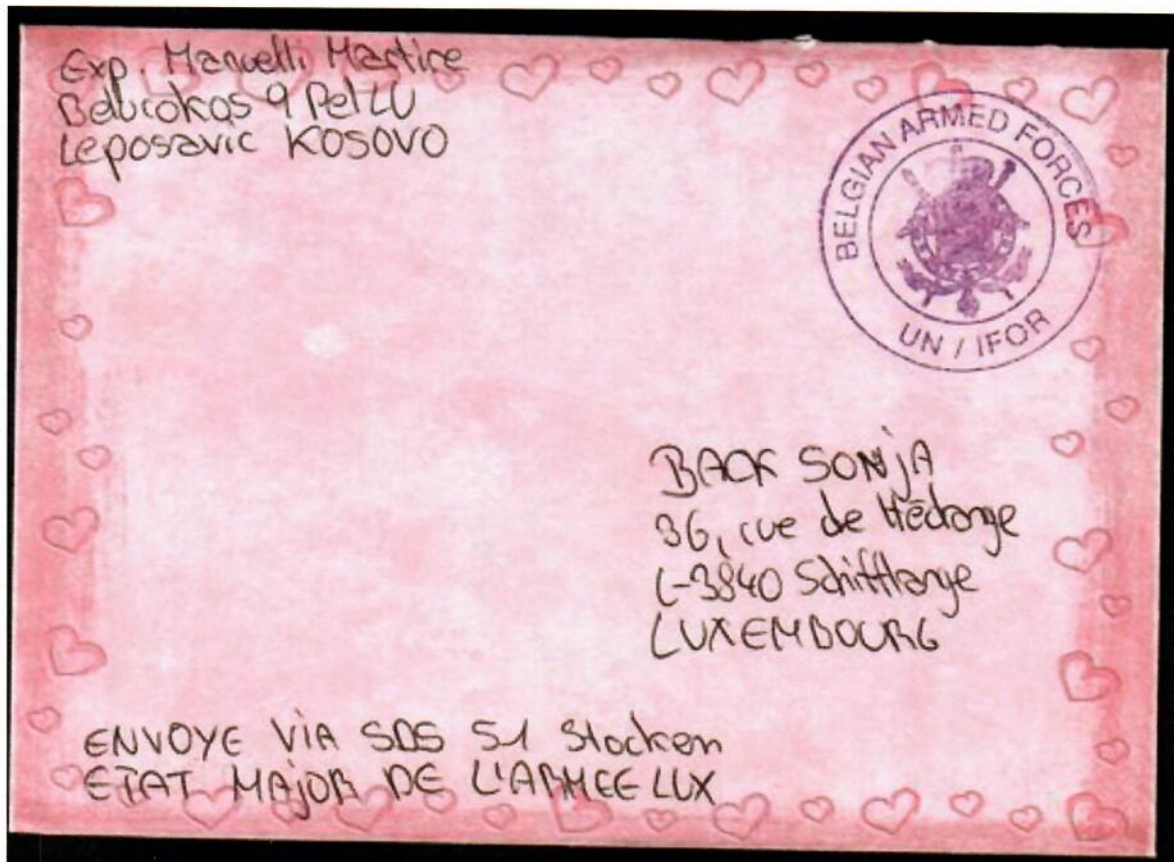 Exp. Manvelli Martice
Belucokos 9 Pel LU
Leposavic KOSOVO
BELGIAN ARMED FORCES
UN / IFOR
BACK SONJA
36, rue de Hédange
L-3840 Schifflange
LUXEMBOURG
ENVOYE VIA SDS 51 Stocken
ETAT MAJOR DE L'ARMEE LUX